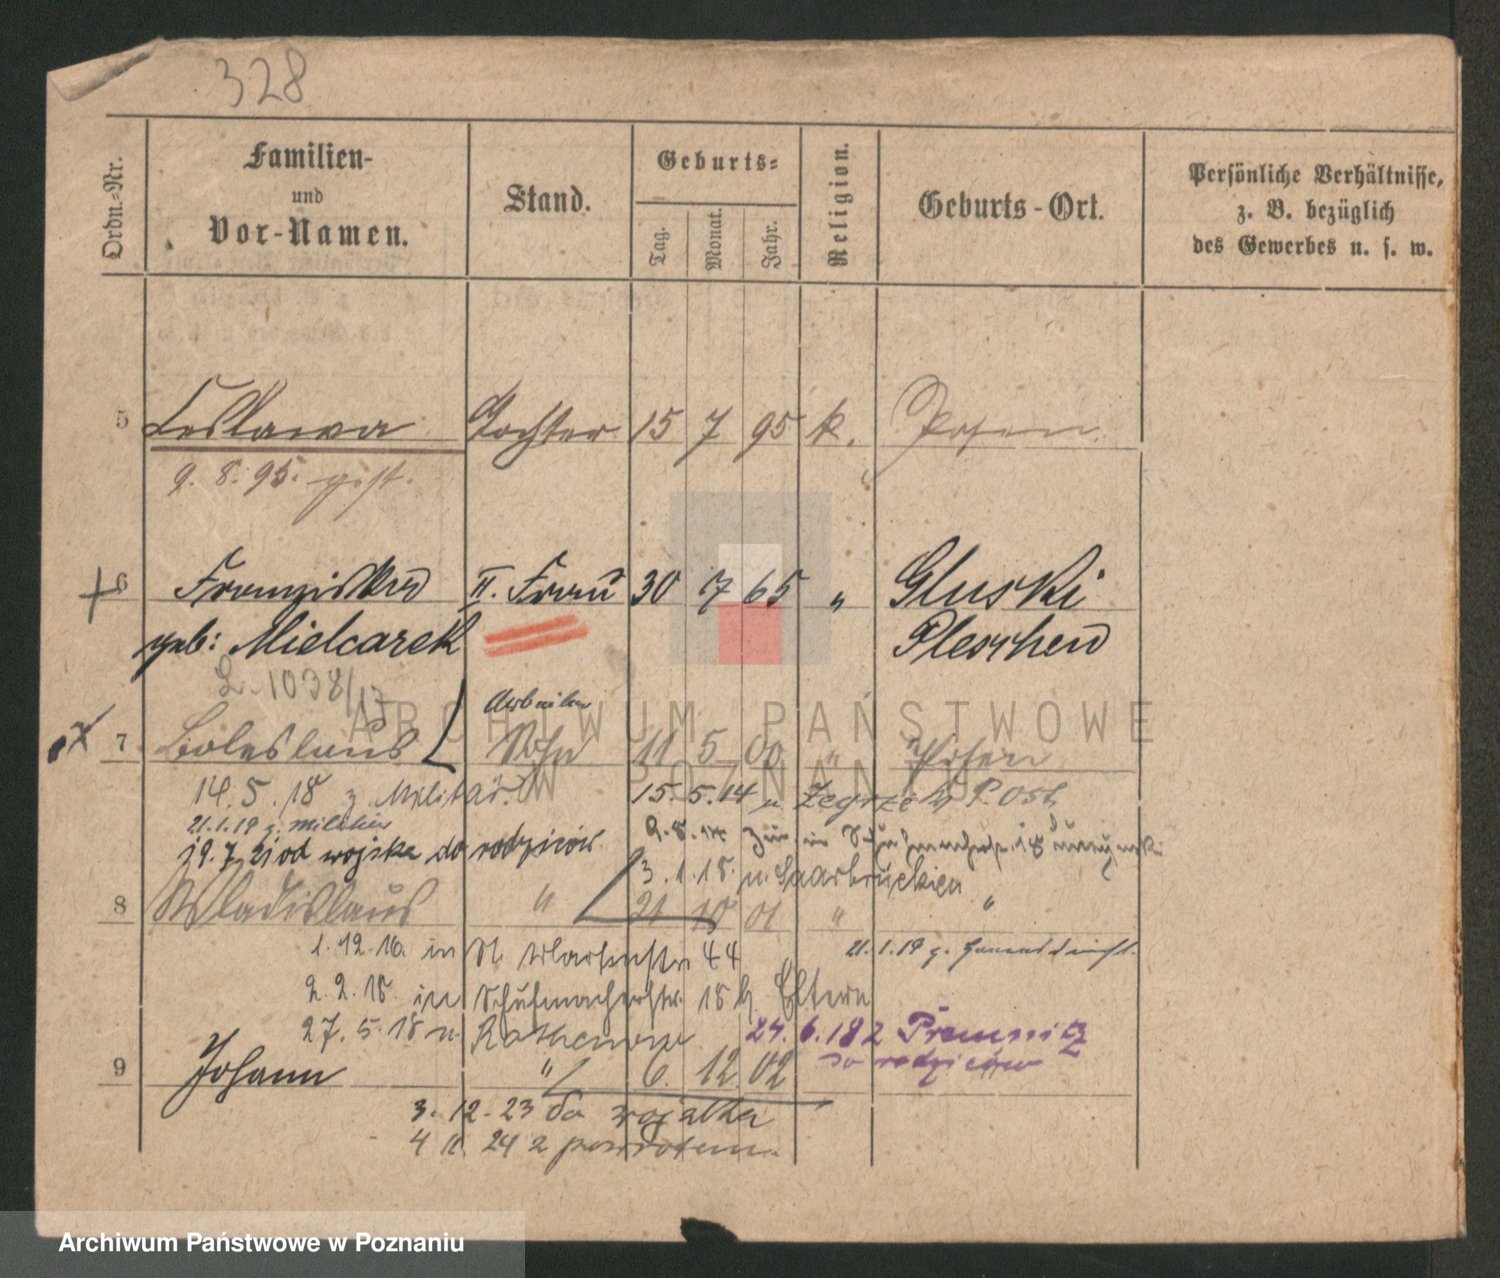 328
Ordn.-Nr.
Familien-
und
Vor-Namen.
Stand.
Geburts-
Tag.
Monat.
Jahr.
Religion.
Geburts-Ort.
Persönliche Verhältnisse,
z. B. bezüglich
des Gewerbes u. s. w.
5 Leslawa Tochter 15 7 95 k. Posen.
9. 8. 95. gest.
6 Franziska II. Frau 30 7 65 " Gluski
geb: Mielcarek Pleschen
2. 1038/13
Arbeiter
7 Boleslaus Sohn 11 5 00 " Posen
14. 5. 18 z. Militär. 15. 5. 14 n. Zegrze Kr. P. Ost
21.1.19 z.
19. 7. 21 od wojska do rodziców. 2. 8. 14
3. 1. 18. n. Saarbrücken
8 Wladislaus " 21 10 01 " "
1. 12. 16. in St. Martinstr 44 21. 1. 19 z.
2. 2. 18. in Schuhmacherstr. 18 b. Eltern
27. 5. 18 n. Rathenow 24. 6. 18 z Premnitz
do rodziców
9 Johann " 6. 12 02
3. 12. 23 do wojska
4 11. 24 z powrotem.
ARCHIWUM PAŃSTWOWE
W POZNANIU
Archiwum Państwowe w Poznaniu